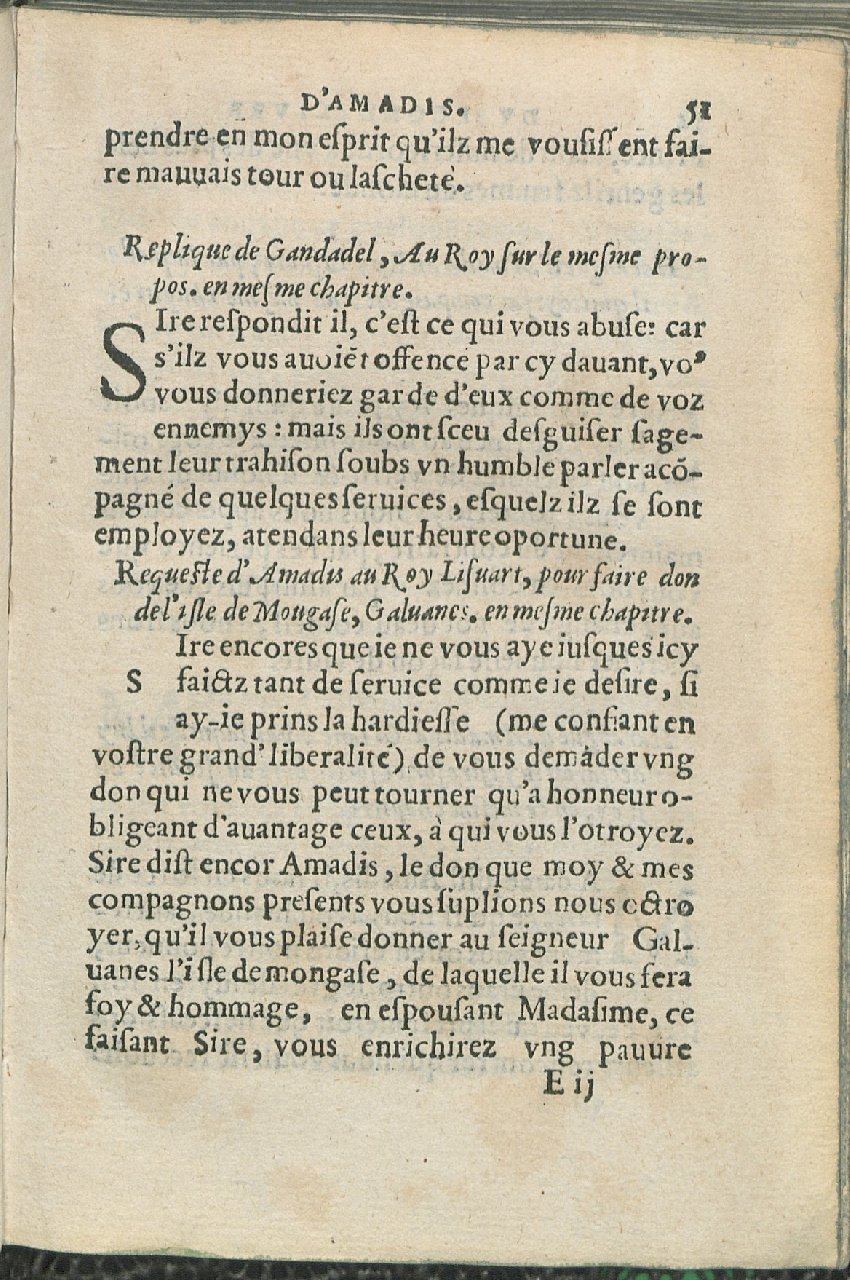 D'AMADIS. 51
prendre en mon eſprit qu'ilz me vouſiſſent fai-
re mauuais tour ou laſcheté.
Replique de Gandadel, Au Roy ſur le meſme pro-
pos. en meſme chapitre.
SIre reſpondit il, c'eſt ce qui vous abuſe: car
s'ilz vous auoiẽt offencé par cy dauant, voꝰ
vous donneriez garde d'eux comme de voz
ennemys : mais ils ont ſceu deſguiſer ſage-
ment leur trahiſon ſoubs vn humble parler acõ-
pagné de quelques ſeruices, eſquelz ilz ſe ſont
employez, atendans leur heure oportune.
Requeſte d'Amadis au Roy Liſuart, pour faire don
de l'iſle de Mougaſe, Galuanes. en meſme chapitre.
SIre encores que ie ne vous aye iuſques icy
faictz tant de ſeruice comme ie deſire, ſi
ay-ie prins la hardieſſe (me confiant en
voſtre grand' liberalité) de vous demãder vng
don qui ne vous peut tourner qu'a honneur o-
bligeant d'auantage ceux, à qui vous l'otroyez.
Sire diſt encor Amadis, le don que moy & mes
compagnons preſents vous ſuplions nous octro
yer, qu'il vous plaiſe donner au ſeigneur Gal-
uanes l'iſle de mongaſe, de laquelle il vous fera
foy & hommage, en eſpouſant Madaſime, ce
faiſant Sire, vous enrichirez vng pauure
E ij